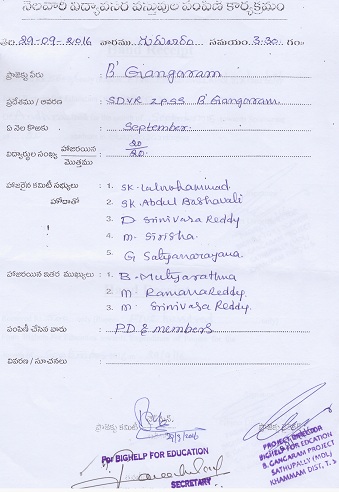 నెలవారి విద్యావసర వస్తువుల పంపిణి కార్యక్రమం
తేది 29-09-2016 వారము గురువారం సమయం 3-30 గం
ప్రాజెక్టు పేరు : B' Gangaram
ప్రదేశము / ఆవరణ : S.D.V.R Z.P.S.S B' Gangaram
ఏ నెల కొఱకు : September
విద్యార్థుల సంఖ్య హాజరయిన / మొత్తము : 20 / 20
హాజరైన కమిటీ సభ్యులు : 1. SK. Lalmohammad
హోదాతో 2. SK. Abdul Bashavali
3. D Srinivasa Reddy
4. m. Sirisha.
5. G Satyanarayana
హాజరయిన ఇతర ముఖ్యులు : 1. B. Mutyarathna
2. M. RamanaReddy.
3. M. Srinivasa Reddy.
పంపిణీ చేసిన వారు : P.D & members
వివరణ / సూచనలు :
ప్రాజెక్టు కమిటీ 29/9/2016
For BIGHELP FOR EDUCATION
SECRETARY
PROJECT DIRECTOR
BIGHELP FOR EDCATION
B. GANGARAM PROJECT
SATHUPALLY (MDL)
KHAMMAM DIST, T. S